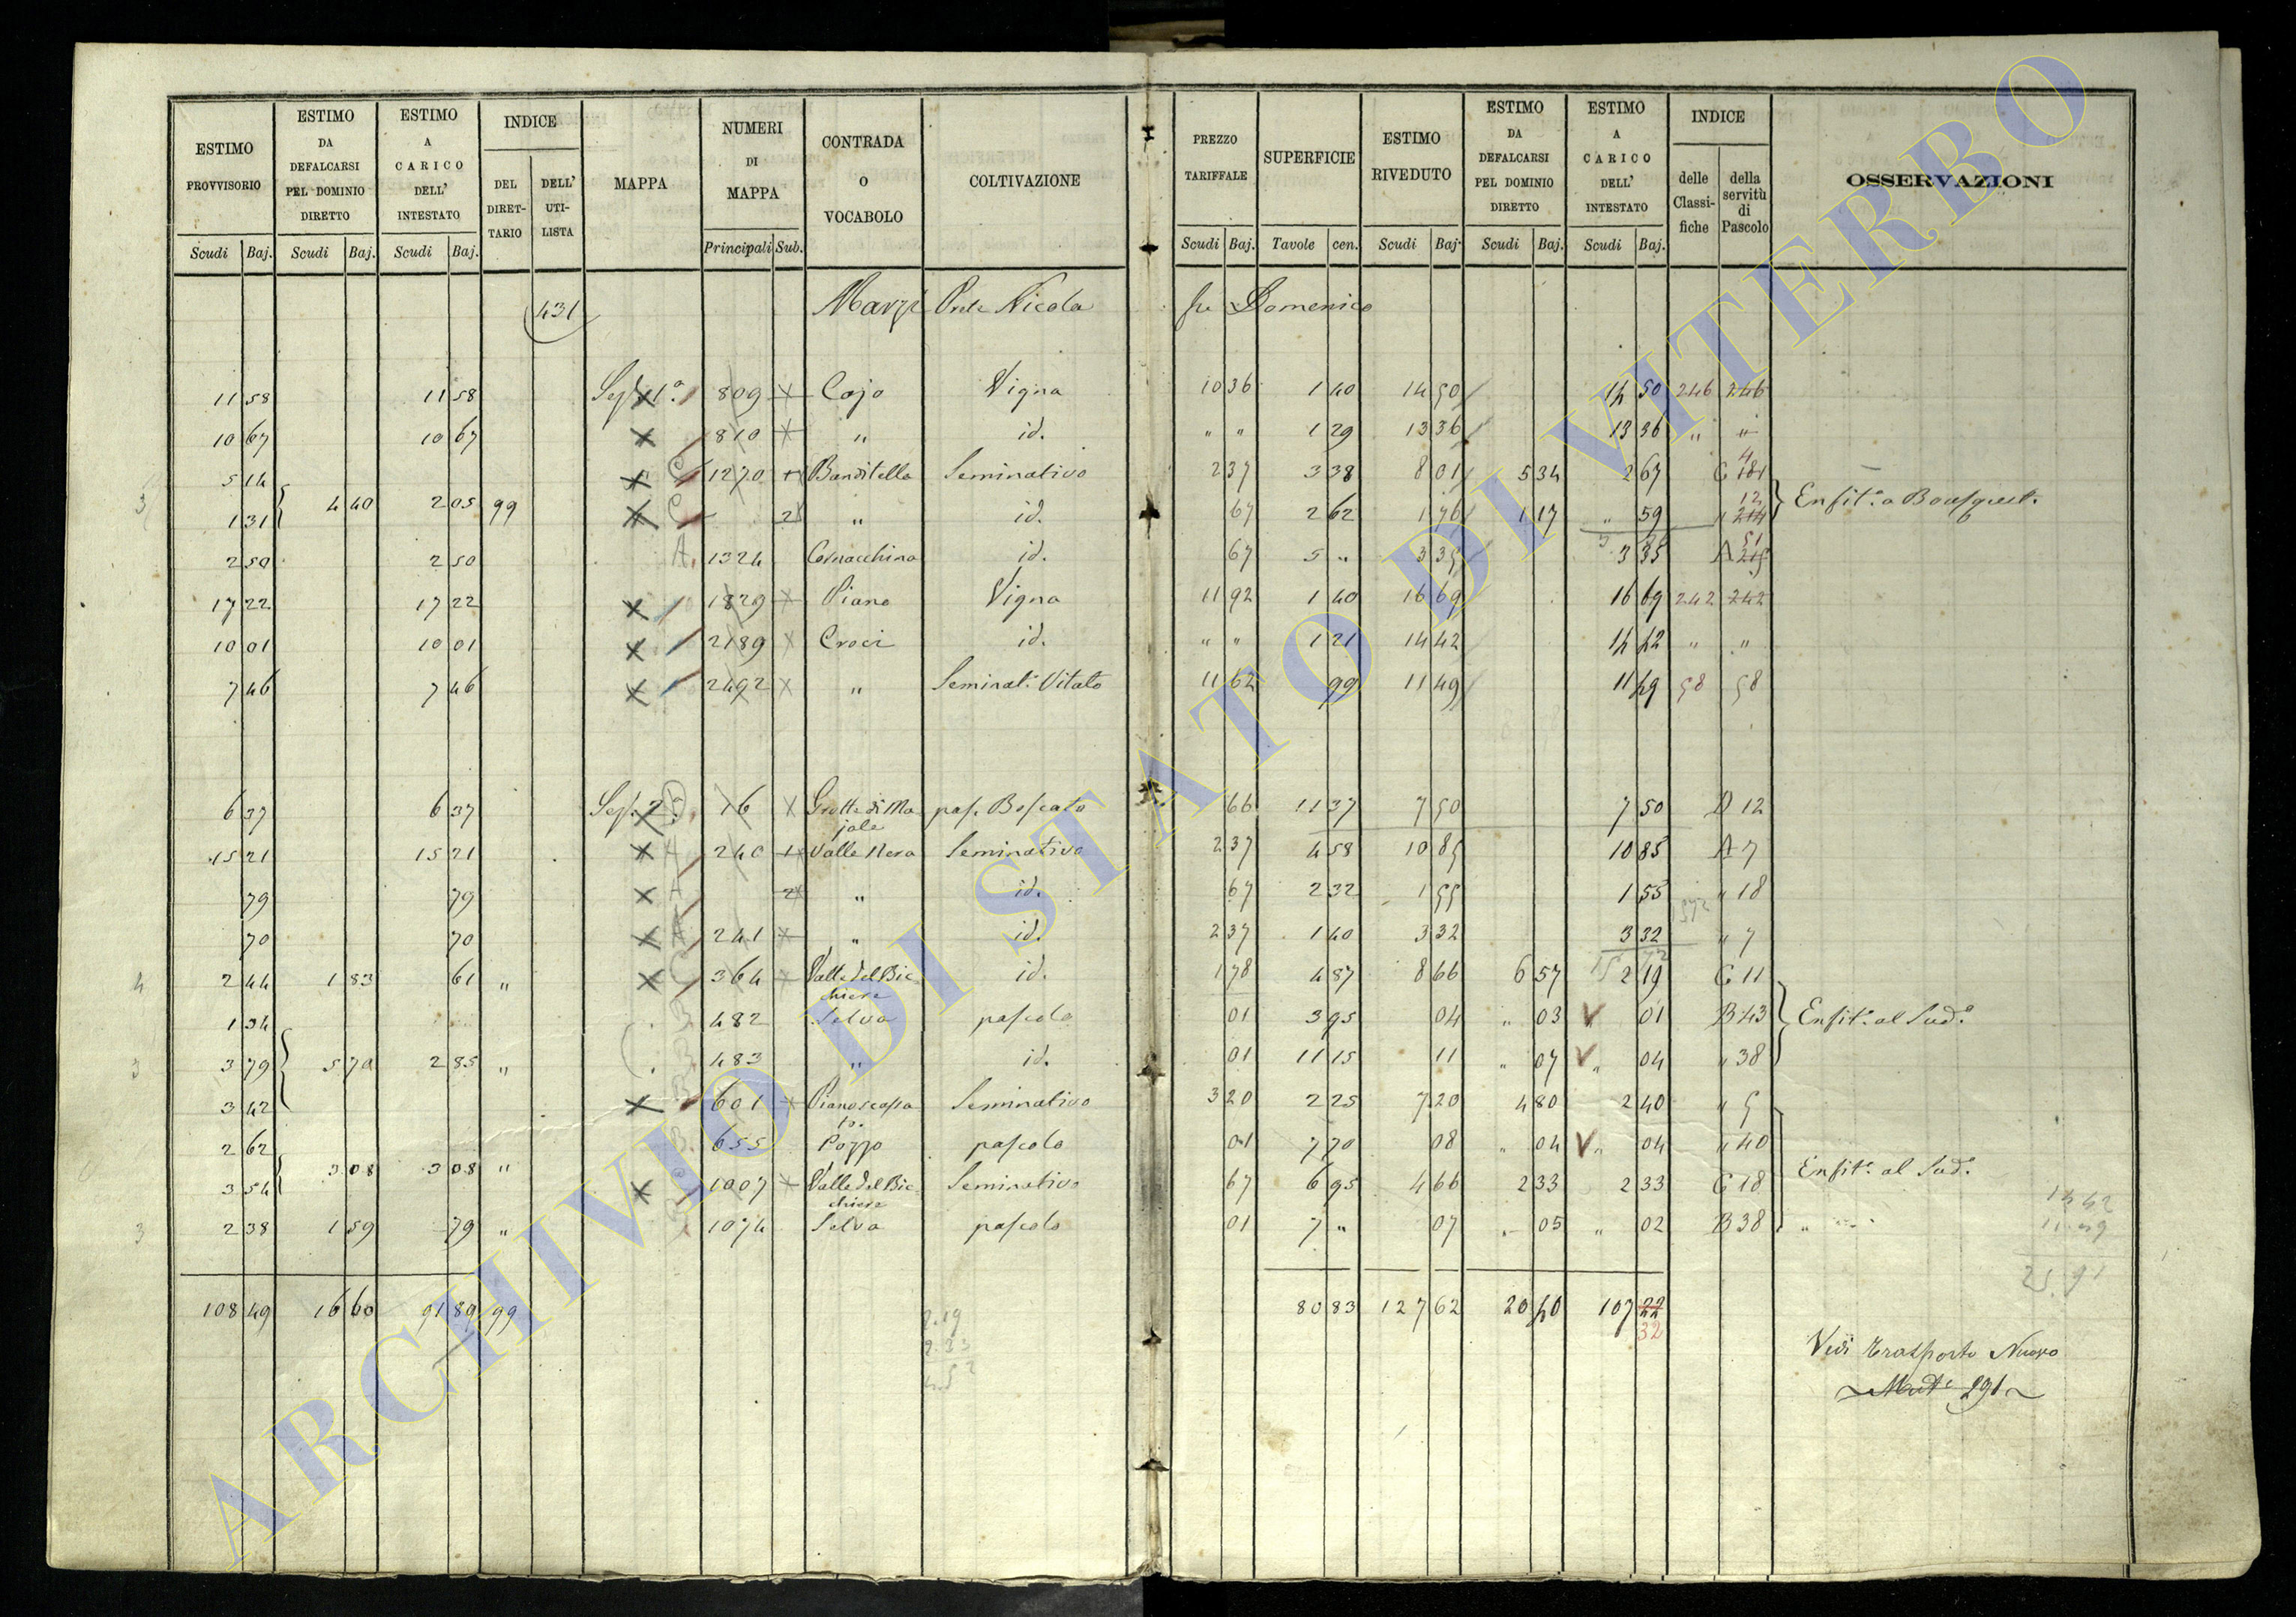 ESTIMO PROVVISORIO | ESTIMO DA DEFALCARSI PEL DOMINIO DIRETTO | ESTIMO A CARICO DELL' INTESTATO | INDICE DEL DIRETTARIO | DELL' UTILISTA | MAPPA | NUMERI DI MAPPA | CONTRADA O VOCABOLO | COLTIVAZIONE | PREZZO TARIFFALE | SUPERFICIE | ESTIMO RIVEDUTO | ESTIMO DA DEFALCARSI PEL DOMINIO DIRETTO | ESTIMO A CARICO DELL' INTESTATO | INDICE delle Classifiche | della servitù di Pascolo | OSSERVAZIONI
Scudi Baj. Scudi Baj. Scudi Baj. Principali Sub. Scudi Baj. Tavole cen. Scudi Baj. Scudi Baj. Scudi Baj.
431 Marzi Nicola fu Domenico
11 58 11 58 809 Cajo Vigna 10 36 1 40 14 50 14 50 246 246
10 67 10 67 810 " id. " " 1 29 13 36 13 36 " "
5 14 C 1270 1 Banditella Seminativo 2 37 3 38 8 01 5 34 2 67 C 4
3 1 31 4 40 2 05 99 C 2 " id. 67 2 62 1 76 1 17 " 59 " 12 214 Enfit.
2 50 2 50 A. 1324 Cornacchina id. 67 5 " 3 35 3 35 A 51 215
17 22 17 22 1829 Piano Vigna 11 92 1 40 16 69 16 69 242 242
10 01 10 01 2189 Croci id. " " 1 21 14 42 14 42 " "
7 46 7 46 2492 " Seminat. Vitato 11 62 99 11 49 11 49 58 58
6 37 6 37 D 6 Grotte di Majale pas. Boscato 66 11 37 7 50 7 50 D 12
15 21 15 21 A 240 1 Valle Nera Seminativo 2 37 4 58 10 85 10 85 A 7
79 79 A 2 " id. 67 2 32 1 55 1 55 " 18
70 70 A 241 " id. 2 37 1 40 3 32 3 32 " 7
4 2 44 1 83 61 " C 364 Valle del Bicchiere id. 1 78 4 87 8 66 6 57 2 19 C 11
1 34 B 482 Selva pascolo 01 3 95 04 " 03 01 B 43 Enfit. al Sud.
3 3 79 5 70 2 85 " B 483 " id. 01 11 15 11 " 07 " 04 " 38
3 42 B 601 Seminativo 3 20 2 25 7 20 4 80 2 40 " 5
2 62 B. 655 Pozzo pascolo 01 7 70 08 " 04 " 04 " 40
3 54 3 08 3 08 " C 1007 Valle del Bicchiere Seminativo 67 6 95 4 66 2 33 2 33 C 18 Enfit. al Sud.
3 2 38 1 59 79 " 1074 Selva pascolo 01 7 " 07 " 05 " 02 B 38 "
11 49
25.91
108 49 16 60 91 89 99 80 83 127 62 20 40 107 22
32
2.19
2.33
Vedi Trasporto Nuovo
291
ARCHIVIO DI STATO DI VITERBO